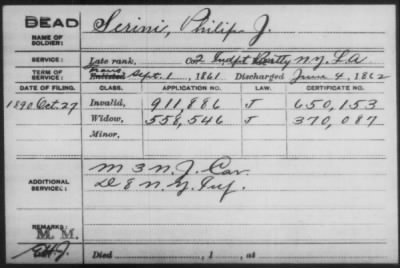 DEAD
NAME OF SOLDIER: Serini, Philip J.
SERVICE: Late rank, Co. 2 Indpt Batty N.Y. L.A.
TERM OF SERVICE: Enlisted Sept. 1, 1861 Discharged June 4, 1862
DATE OF FILING. CLASS. APPLICATION NO. LAW. CERTIFICATE NO.
1890 Oct. 27 Invalid, 911,886 J 650,153
Widow, 558,546 J 370,087
Minor,
ADDITIONAL SERVICES: M 3 N.J. Cav.
D 8 N.Y. Inf.
REMARKS:
M. M.
Died , 1 , at